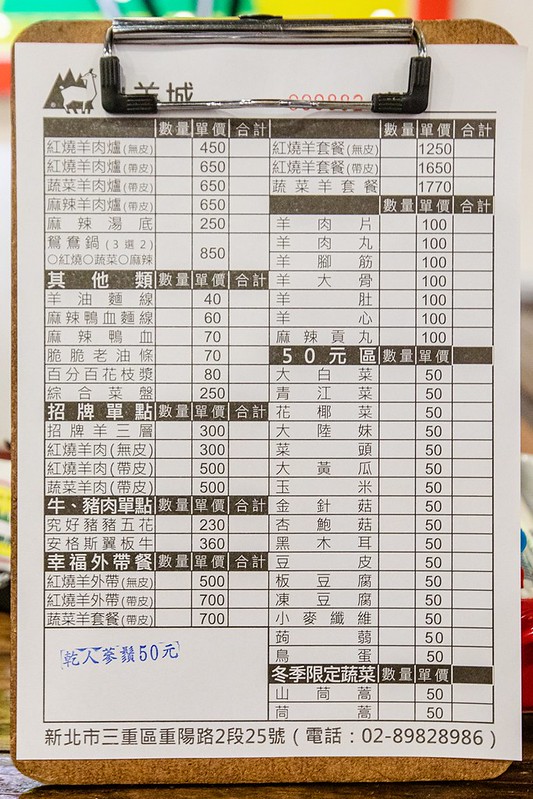 羊城
000882
數量 單價 合計
紅燒羊肉爐(無皮) 450
紅燒羊肉爐(帶皮) 650
蔬菜羊肉爐(帶皮) 650
麻辣羊肉爐(帶皮) 650
麻辣湯底 250
鴛鴦鍋(3選2) 850
○紅燒○蔬菜○麻辣
其他類 數量 單價 合計
羊油麵線 40
麻辣鴨血麵線 60
麻辣鴨血 70
脆脆老油條 70
百分百花枝漿 80
綜合菜盤 250
招牌單點 數量 單價 合計
招牌羊三層 300
紅燒羊肉(無皮) 300
紅燒羊肉(帶皮) 500
蔬菜羊肉(帶皮) 500
牛、豬肉單點 數量 單價 合計
究好豬豬五花 230
安格斯翼板牛 360
幸福外帶餐 數量 單價 合計
紅燒羊外帶(無皮) 500
紅燒羊外帶(帶皮) 700
蔬菜羊套餐(帶皮) 700
乾人蔘鬚50元
數量 單價 合計
紅燒羊套餐(無皮) 1250
紅燒羊套餐(帶皮) 1650
蔬菜羊套餐 1770
數量 單價 合計
羊肉片 100
羊肉丸 100
羊腳筋 100
羊大骨 100
羊肚 100
羊心 100
麻辣貢丸 100
50元區 數量 單價 合計
大白菜 50
青江菜 50
花椰菜 50
大陸妹 50
菜頭 50
大黃瓜 50
玉米 50
金針菇 50
杏鮑菇 50
黑木耳 50
豆皮 50
板豆腐 50
凍豆腐 50
小麥纖維 50
蒟蒻 50
鳥蛋 50
冬季限定蔬菜 數量 單價 合計
山茼蒿 50
茼蒿 50
新北市三重區重陽路2段25號(電話:02-89828986)